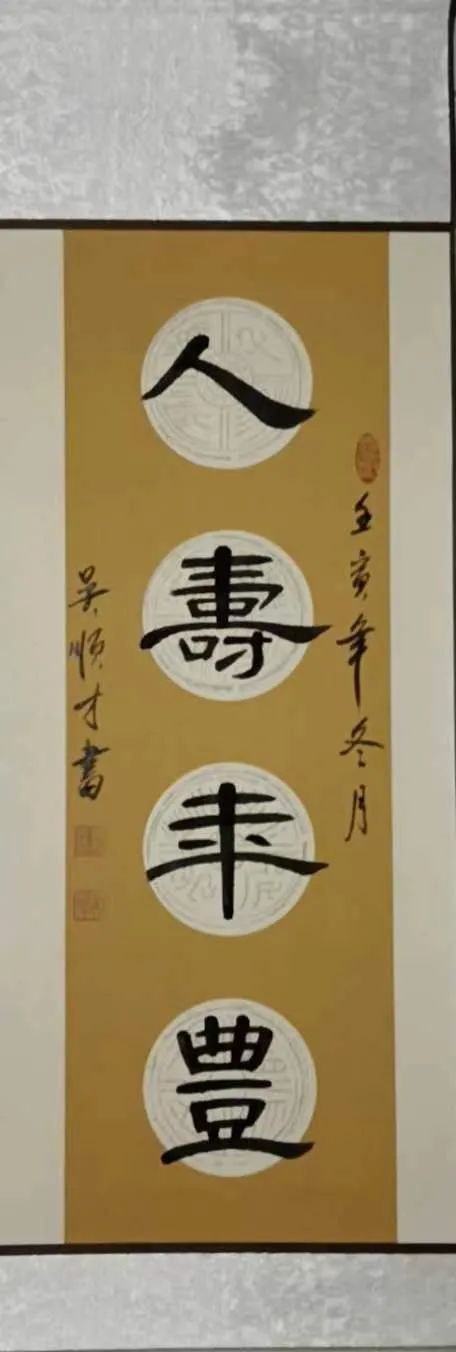 壬寅年冬月
人壽年豐
吳順才書